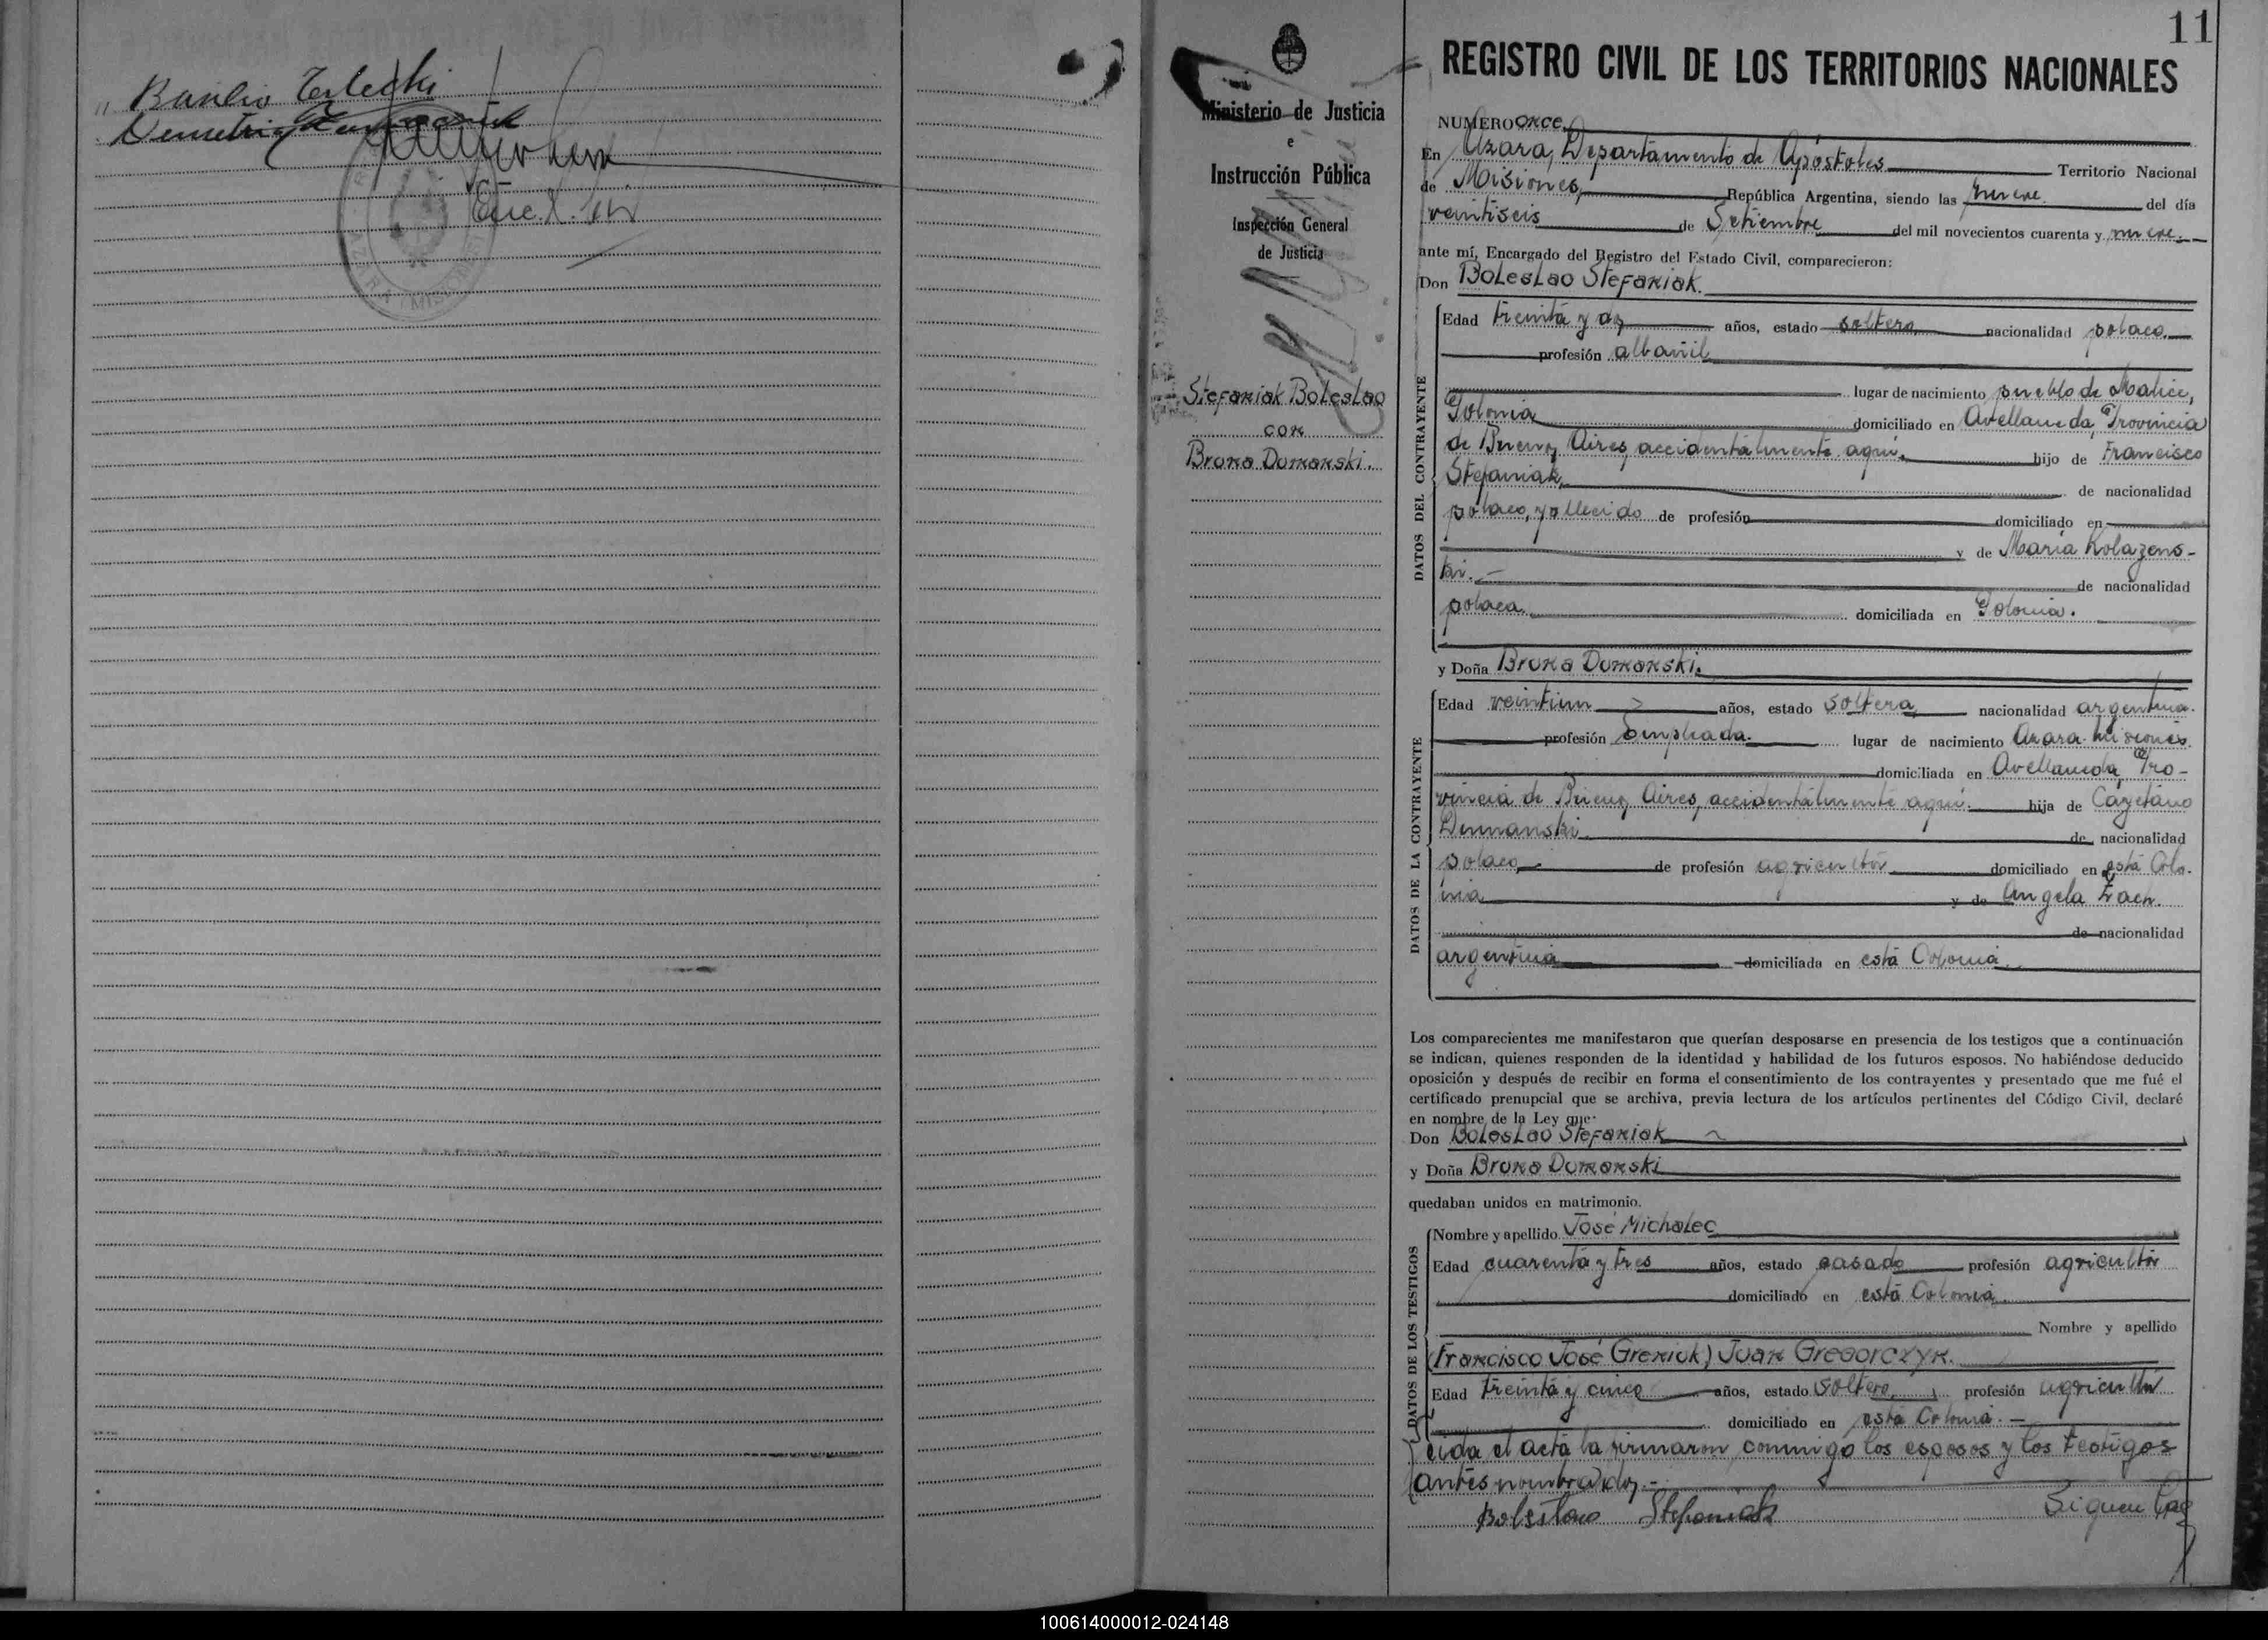 Basilio Terlecki
Demetrio
Enc. R. Civil
AZARA MISIONES
11
Ministerio de Justicia
e
Instrucción Pública
Inspección General
de Justicia
Stefaniak Boleslao
con
Bruna Dumanski.
REGISTRO CIVIL DE LOS TERRITORIOS NACIONALES
NUMERO once
En Azara, Departamento de Apóstoles Territorio Nacional
de Misiones, República Argentina, siendo las nueve del día
veintiseis de Setiembre del mil novecientos cuarenta y nueve.
ante mí, Encargado del Registro del Estado Civil, comparecieron:
Don Boleslao Stefaniak.
DATOS DEL CONTRAYENTE
Edad treinta y dos años, estado soltero nacionalidad polaco.
profesión albañil
lugar de nacimiento pueblo de
Polonia domiciliado en Avellaneda, Provincia
de Buenos Aires, accidentalmente aquí. hijo de Francisco
Stefaniak, de nacionalidad
polaco, fallecido de profesión domiciliado en
y de María Kolazens-
ki. de nacionalidad
polaca. domiciliada en Polonia.
y Doña Bruna Dumanski.
DATOS DE LA CONTRAYENTE
Edad veintiun años, estado soltera nacionalidad argentina.
profesión Empleada. lugar de nacimiento Azara Misiones.
domiciliada en Avellaneda, Pro-
vincia de Buenos Aires, accidentalmente aquí. hija de Cayetano
Dumanski de nacionalidad
polaco, de profesión agricultor domiciliado en está Colo-
nia y de Angela
de nacionalidad
argentina domiciliada en está Colonia.
Los comparecientes me manifestaron que querían desposarse en presencia de los testigos que a continuación
se indican, quienes responden de la identidad y habilidad de los futuros esposos. No habiéndose deducido
oposición y después de recibir en forma el consentimiento de los contrayentes y presentado que me fué el
certificado prenupcial que se archiva, previa lectura de los artículos pertinentes del Código Civil, declaré
en nombre de la Ley que:
Don Boleslao Stefaniak
y Doña Bruna Dumanski
quedaban unidos en matrimonio.
DATOS DE LOS TESTIGOS
Nombre y apellido José Michalec
Edad cuarenta y tres años, estado casado profesión agricultor
domiciliado en está Colonia.
Nombre y apellido
(Francisco José Greniuk) Juan Gregorczyk.
Edad treinta y cinco años, estado soltero, profesión agricultor
domiciliado en está Colonia.
cida el acta la firmaron conmigo los esposos y los testigos
antes nombrados.-
Boleslao Stefaniak Siguen
100614000012-024148